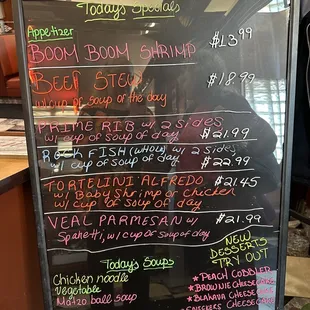 Today's Specials
Appetizer
BOOM BOOM SHRIMP $13.99
BEEF STEW $18.99
w/ cup of soup of the day
PRIME RIB w/ 2 sides
w/ cup of soup of day $21.99
ROCK FISH (WHOLE) w/ 2 sides
w/ cup of soup of day $22.99
TORTELINI ALFREDO $21.45
w/ Baby shrimp or chicken
w/ cup of soup of day
VEAL PARMESAN w/ $21.99
Spaketti, w/ cup of soup of day
Today's Soups
Chicken noodle
Vegetable
Matzo ball soup
NEW
DESSERTS
TRY OUT
* PEACH COBBLER
* BROWNIE CHEESECAKE
* BLAKAVA CHEESECAKE
* SNICKERS CHEESECAKE